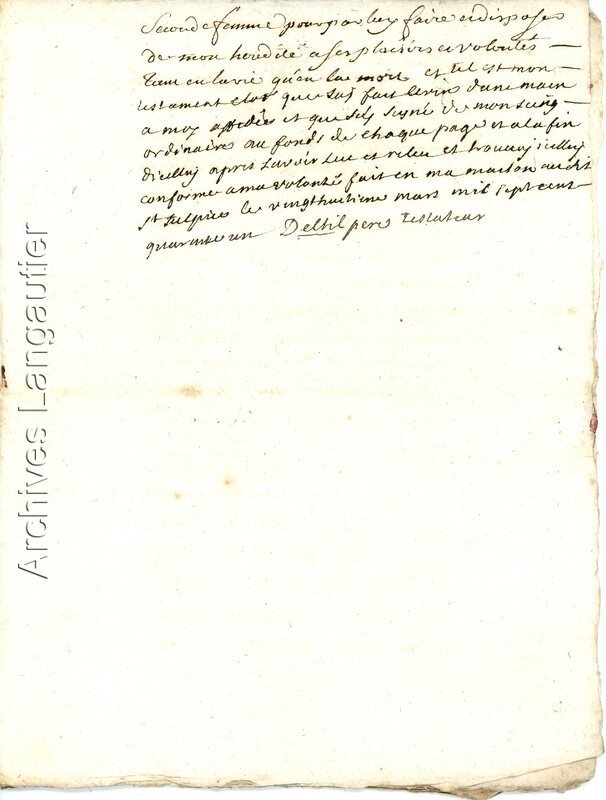 Seconde femme pour par luy faire et disposer
de mon heredité a ses plaisirs et volontés
tant en la vie qu'en la mort et tel est mon
testament clos que j'ay fait ecrire d'une main
a moy affidée et que j'ay signé de mon seing
ordinaire au fonds de chaque page et a la fin
dicelluy apres l'avoir lue et releu et trouvay icelluy
conforme a ma volonté fait en ma maison audit
St Sulpice le vingthuitieme mars mil sept cent
quarante un Delhil pere testateur
Archives Langautier